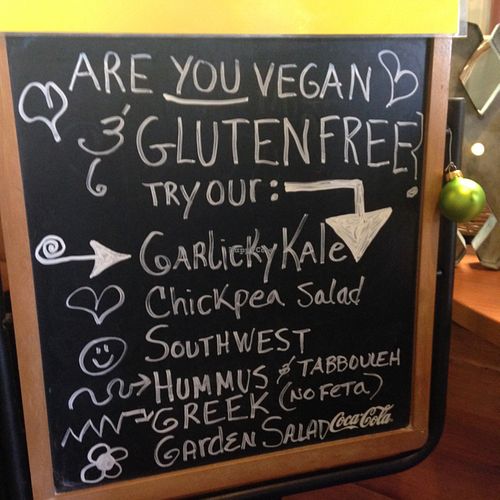 ARE YOU VEGAN
& GLUTEN FREE?
TRY OUR:
GARLICKY KALE
Chickpea Salad
SOUTHWEST
HUMMUS & TABBOULEH
GREEK (NO FETA)
GARDEN SALAD Coca-Cola
HappyCow